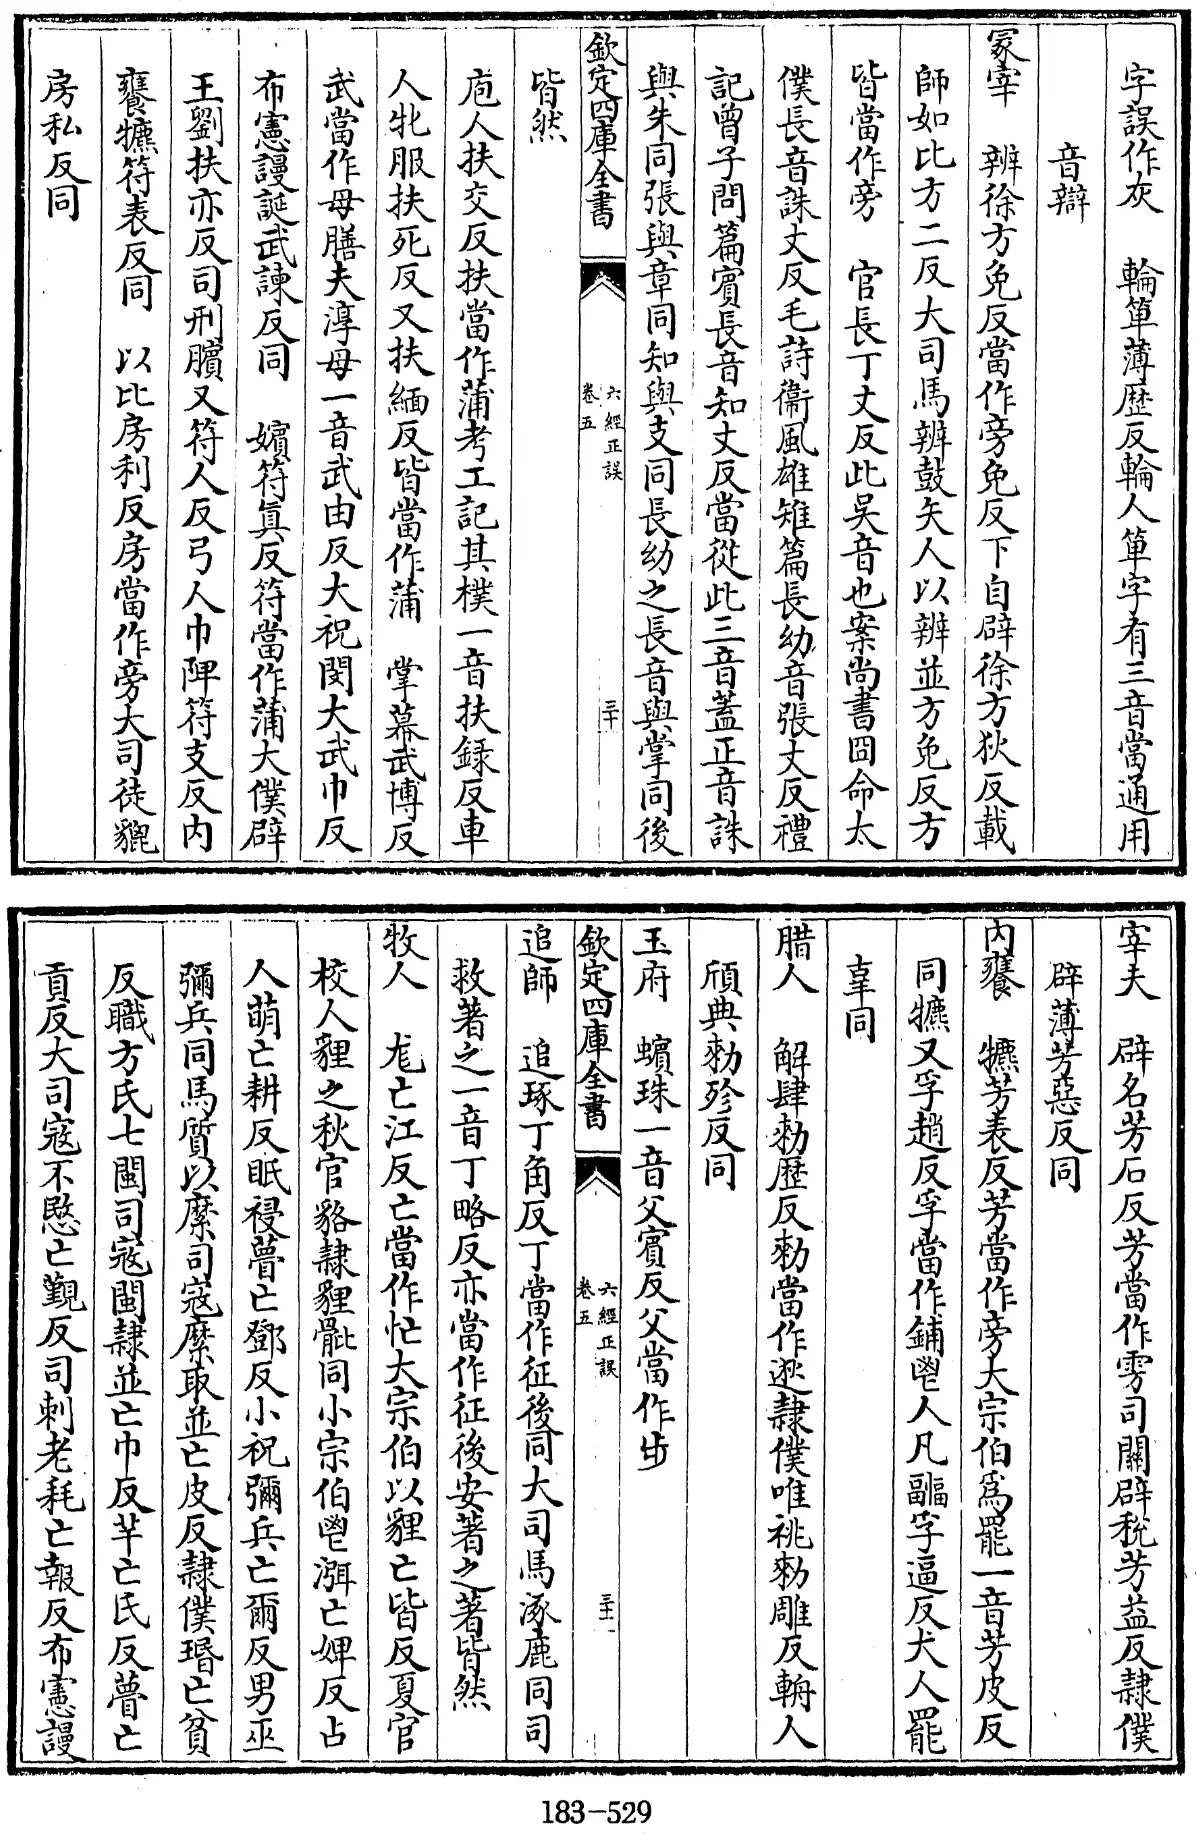 字誤作灰　輪箄薄歷反輪人箄字有三音當通用
音辯
冢宰　辨徐方免反當作旁免反下自辟徐方狄反載
師如比方二反大司馬辨鼓矢人以辨並方免反方
皆當作旁　官長丁丈反此吳音也案尚書冏命太
僕長音誅丈反毛詩衞風雄雉篇長幼音張丈反禮
記曾子問篇賓長音知丈反當從此三音蓋正音誅
與朱同張與章同知與支同長幼之長音與掌同後
欽定四庫全書
六經正誤
卷五
三十
皆然
庖人扶交反扶當作蒲考工記其樸一音扶録反車
人牝服扶死反又扶緬反皆當作蒲　掌幕武博反
武當作母膳夫淳母一音武由反大祝閔大武巾反
布憲謾誕武諫反同　嬪符眞反符當作蒲大僕辟
王劉扶亦反司刑臏又符人反弓人巾陴符支反内
饔㸸符表反同　以比房利反房當作旁大司徒貔
房私反同
宰夫　辟名芳石反芳當作雱司關辟稅芳益反隷僕
辟薄芳惡反同
内饔　㸸芳表反芳當作旁大宗伯爲罷一音芳皮反
同㸸又孚趙反孚當作鋪鬯人凡疈孚逼反犬人罷
辜同
腊人　解肆勑歷反勑當作逖隷僕唯祧勑雕反輈人
頎典勑殄反同
玉府　蠙珠一音父賓反父當作步
欽定四庫全書
六經正誤
卷五
三十一
追師　追琢丁角反丁當作征後同大司馬涿鹿同司
救著之一音丁略反亦當作征後安著之著皆然
牧人　尨亡江反亡當作忙大宗伯以貍亡皆反夏官
校人貍之秋官貉隷貍骴同小宗伯鬯渳亡婢反占
人萌亡耕反眡祲瞢亡鄧反小祝彌兵亡爾反男巫
彌兵同馬質以縻司寇縻取並亡皮反隷僕㬆亡貧
反職方氏七閩司寇閩隷並亡巾反芉亡氏反瞢亡
貢反大司寇不愍亡覲反司刺老耗亡報反布憲謾
183-529